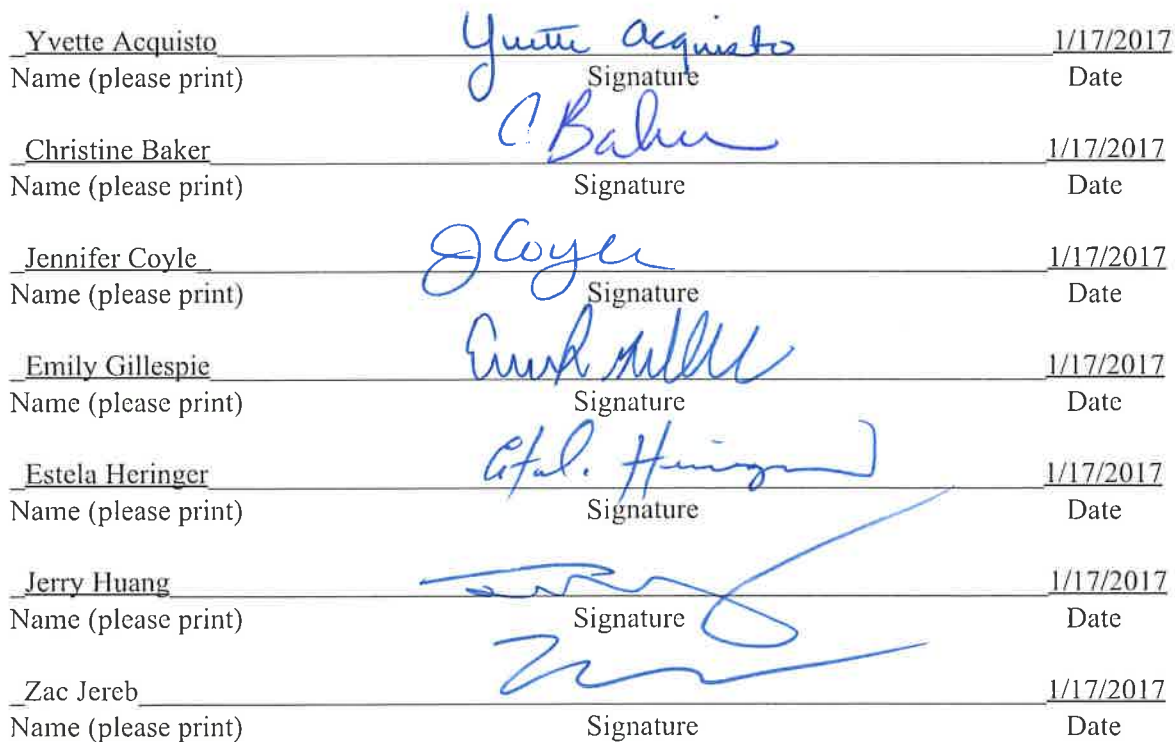 Yvette Acquisto Yvette Acquisto 1/17/2017
Name (please print) Signature Date
Christine Baker C Baker 1/17/2017
Name (please print) Signature Date
Jennifer Coyle J Coyle 1/17/2017
Name (please print) Signature Date
Emily Gillespie 1/17/2017
Name (please print) Signature Date
Estela Heringer 1/17/2017
Name (please print) Signature Date
Jerry Huang 1/17/2017
Name (please print) Signature Date
Zac Jereb 1/17/2017
Name (please print) Signature Date